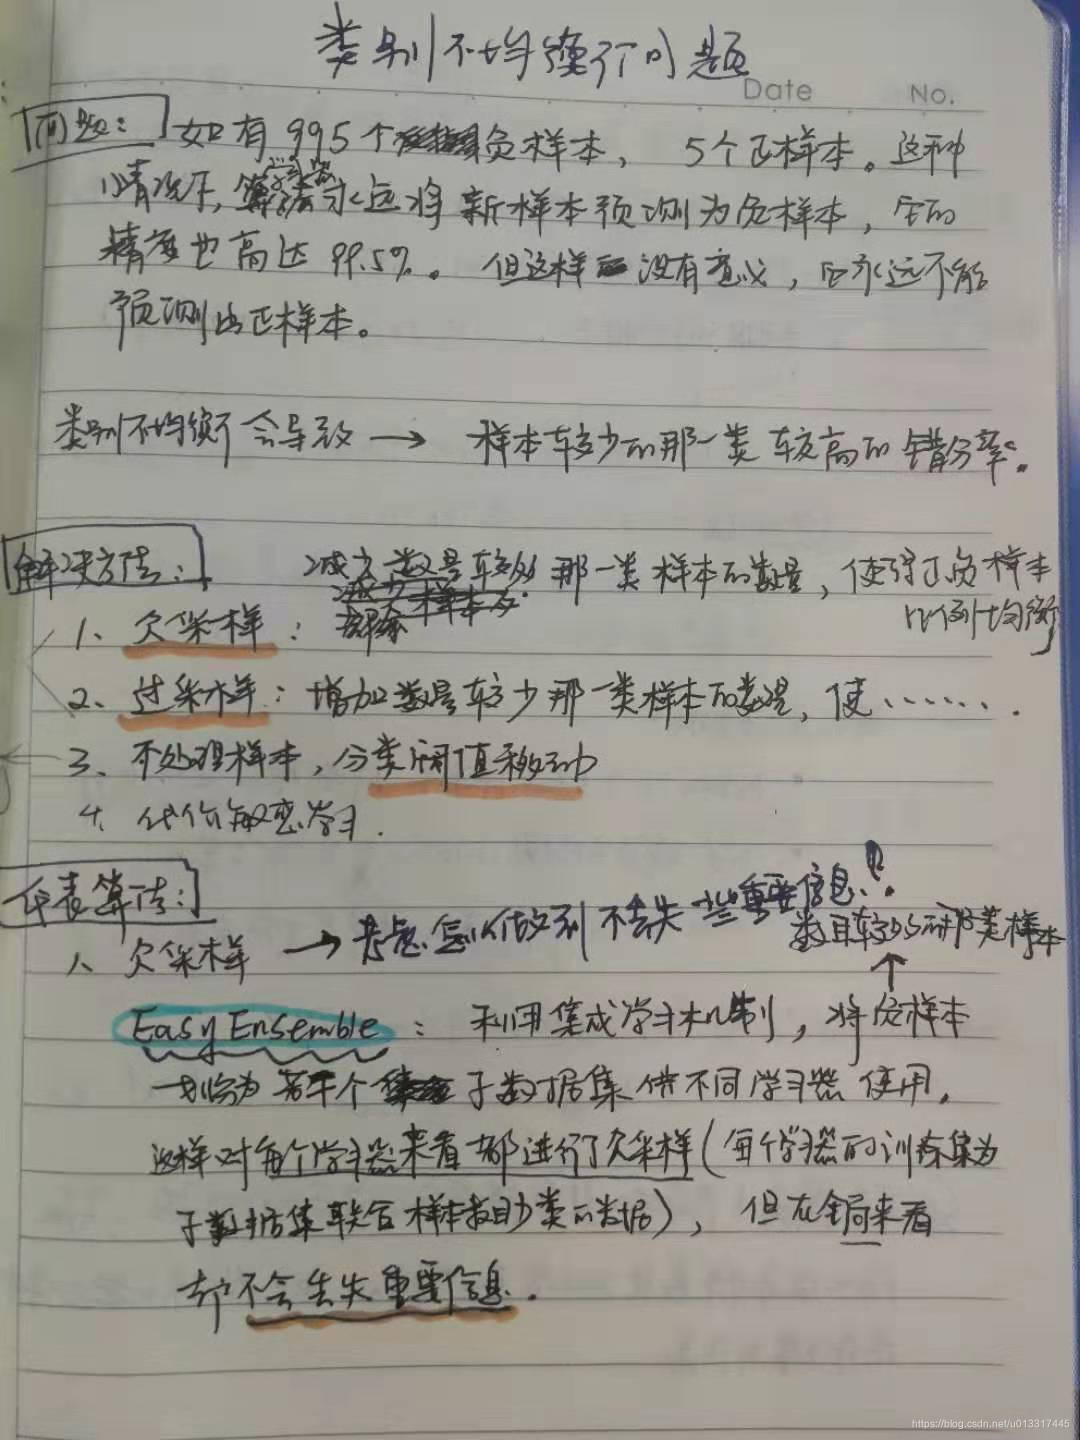 类别不均衡问题
Date No.
问题: 如有 995个负样本, 5个正样本。这种
情况下, 学习器永远将新样本预测为负样本, 它的
精度也高达 99.5%。但这样没有意义, 它永远不能
预测出正样本。
类别不均衡会导致 → 样本较少的那一类较高的错分率。
解决方法:
1、欠采样: 减少数量较多那一类样本的数量, 使得正负样本
比例均衡
2、过采样: 增加数量较少那一类样本的数量, 使.......
3、不处理样本, 分类阈值移动
4、代价敏感学习.
代表算法:
1、欠采样 → 考虑怎么做到不丢失一些重要信息!
数目较多的那类样本
↑
Easy Ensemble: 利用集成学习机制, 将负样本
划分为若干个子数据集供不同学习器使用,
这样对每个学习器来看都进行了欠采样(每个学习器的训练集为
子数据集联合样本数目少类的数据), 但在全局来看
却不会丢失重要信息.
https://blog.csdn.net/u013317445